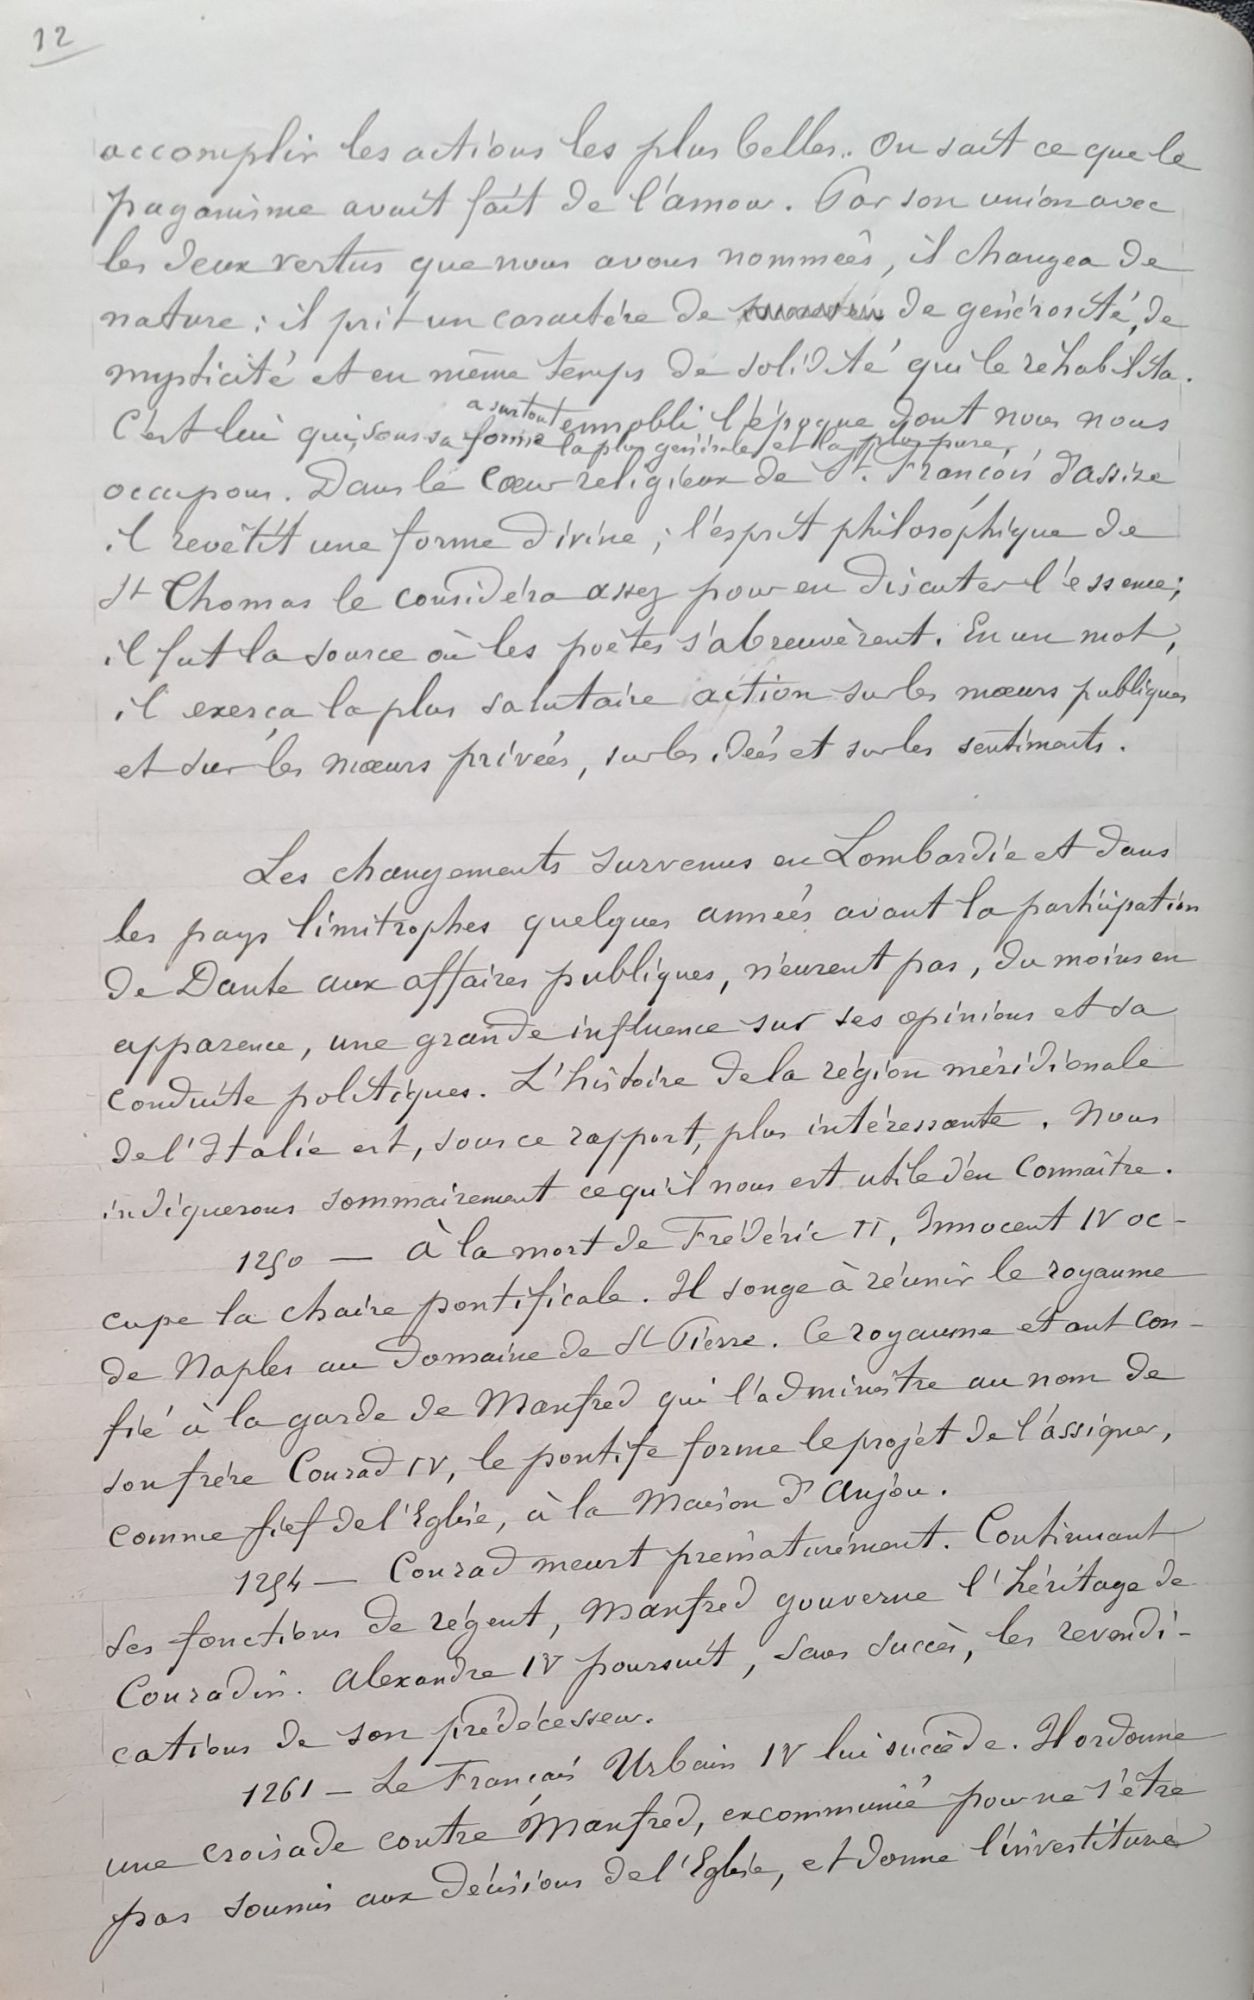 12
accomplir les actions les plus belles. On sait ce que le
paganisme avait fait de l'amour. Par son union avec
les deux vertus que nous avons nommées, il changea de
nature : il prit un caractère de de générosité, de
mysticité et en même temps de solidité qui le réhabilita.
a surtout
C'est lui qui, sous sa forme empli l'époque dont nous nous
la plus générale et la plus pure,
occupons. Dans le cœur religieux de St. François d'Assise
il revêtit une forme divine ; l'esprit philosophique de
St Thomas le considéra assez pour en discuter l'essence ;
il fut la source où les poètes s'abreuvèrent. En un mot,
il exerça la plus salutaire action sur les mœurs publiques
et sur les mœurs privées, sur les idées et sur les sentiments.
Les changements survenus en Lombardie et dans
les pays limitrophes quelques années avant la participation
de Dante aux affaires publiques, n'eurent pas, du moins en
apparence, une grande influence sur ses opinions et sa
conduite politiques. L'histoire de la région méridionale
de l'Italie est, sous ce rapport, plus intéressante. Nous
indiquerons sommairement ce qu'il nous est utile d'en connaître.
1250 — À la mort de Frédéric II, Innocent IV oc-
cupe la chaire pontificale. Il songe à réunir le royaume
de Naples au domaine de St Pierre. Ce royaume étant con-
fié à la garde de Manfred qui l'administre au nom de
son frère Conrad IV, le pontife forme le projet de l'assigner,
comme fief de l'Eglise, à la Maison d'Anjou.
1254 — Conrad meurt prématurément. Continuant
ses fonctions de régent, Manfred gouverne l'héritage de
Conradin. Alexandre IV poursuit, sans succès, les revendi-
cations de son prédécesseur.
1261 — Le Français Urbain IV lui succède. Il ordonne
une croisade contre Manfred, excommunié pour ne s'être
pas soumis aux décisions de l'Eglise, et donne l'investiture